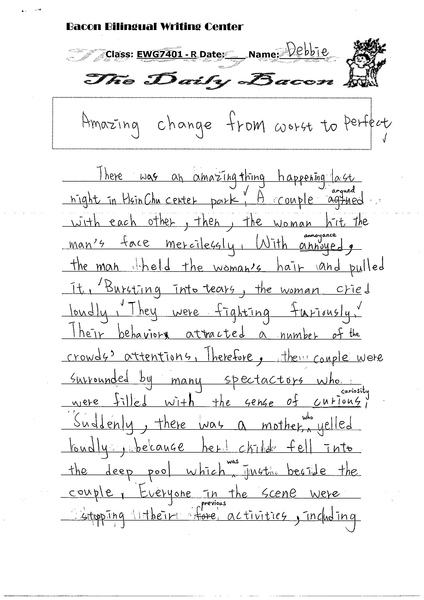 Bacon Bilingual Writing Center
Class: EWG7401 - R Date:___ Name: Debbie
The Daily Bacon
Amazing change from worst to Perfect
There was an amazing thing happening last
night in HsinChu center park. A couple argued
with each other, then, the woman hit the
man's face mercilessly. With annoyed, annoyance
the man held the woman's hair and pulled
it. Bursting into tears, the woman cried
loudly. They were fighting furiously.
Their behaviors attracted a number of the
crowds' attentions. Therefore, the couple were
surrounded by many spectactors who
were filled with the sense of curious, curiosity
Suddenly, there was a mother who yelled
loudly, because her child fell into
the deep pool which was just beside the
couple. Everyone in the scene were
stopping their fore previous activities, including